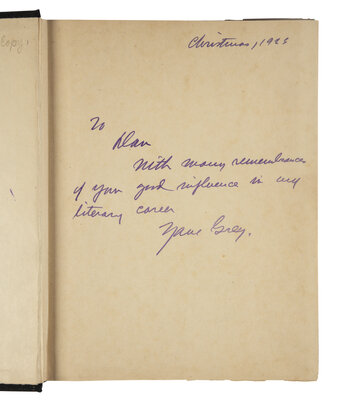 Copy.
Christmas, 19
To
Dan
With many remembrances
of your good influence in my
literary career
Zane Grey.